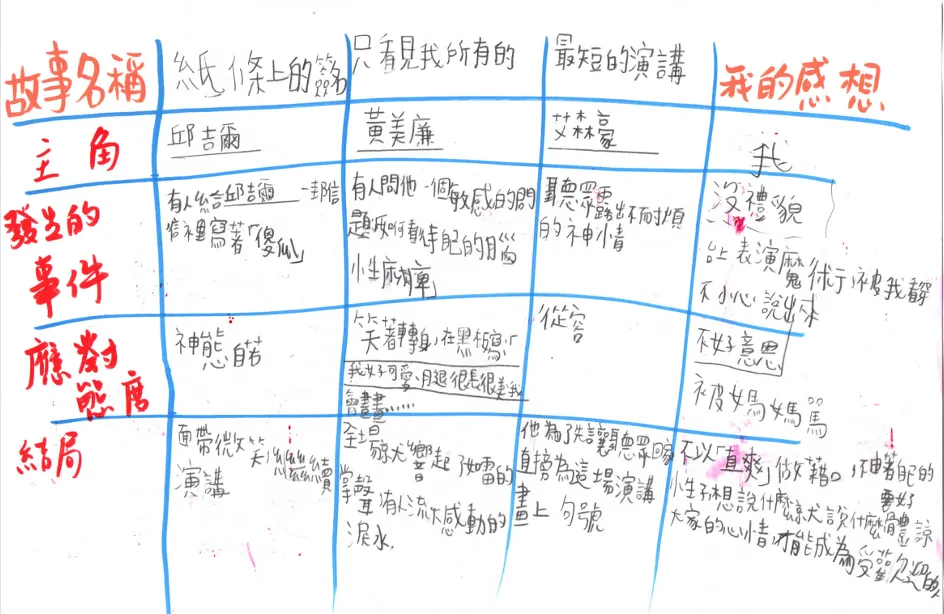 故事名稱
紙條上的簽名
只看見我所有的
最短的演講
我的感想
主角
邱吉爾
黃美廉
艾林豪
我
發生的
事件
有人給邱吉爾一封信
信裡寫著「傻瓜」
有人問他一個敏感的問
題:如何看待自己的腦
性麻痺
聽眾露出不耐煩
的神情
沒禮貌
表演魔術
不小心說出來
應對
態度
神態自若
笑著轉身,在黑板寫
我好可愛、月退很長很美、我
會畫畫……
從容
不好意思
被媽媽罵
結局
面帶微笑,繼續
演講
全場
響起了如雷的
掌聲,有人流下感動的
淚水,
他為了
直接為這場演講
畫上句號
不以「直爽」做藉口
性子想說什麼就說什麼
大家的心情,才能成為受